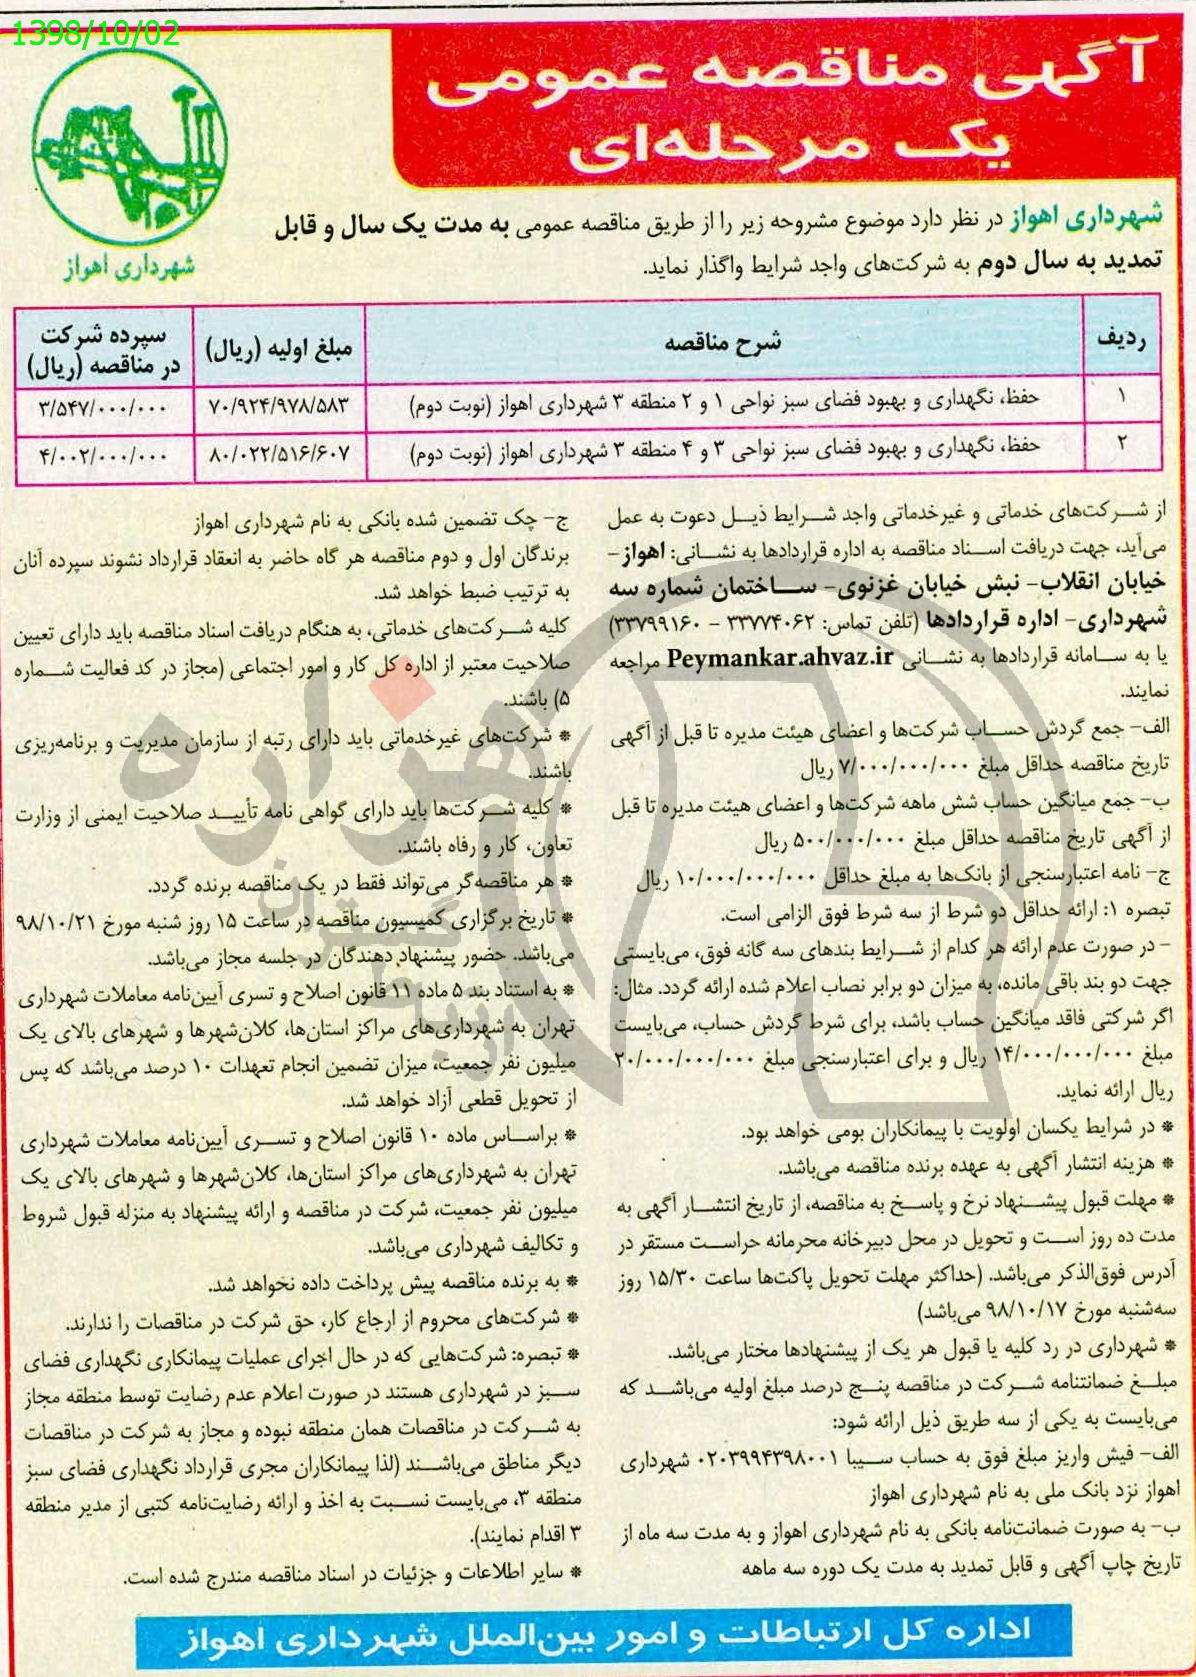 1398/10/02
آگهی مناقصه عمومی
یک مرحله‌ای
شهرداری اهواز
شهرداری اهواز در نظر دارد موضوع مشروحه زیر را از طریق مناقصه عمومی به مدت یک سال و قابل
تمدید به سال دوم به شرکت‌های واجد شرایط واگذار نماید.
ردیف شرح مناقصه مبلغ اولیه (ریال) سپرده شرکت در مناقصه (ریال)
۱ حفظ، نگهداری و بهبود فضای سبز نواحی ۱ و ۲ منطقه ۳ شهرداری اهواز (نوبت دوم) ۷۰/۹۲۴/۹۷۸/۵۸۳ ۳/۵۴۷/۰۰۰/۰۰۰
۲ حفظ، نگهداری و بهبود فضای سبز نواحی ۳ و ۴ منطقه ۳ شهرداری اهواز (نوبت دوم) ۸۰/۰۲۲/۵۱۶/۶۰۷ ۴/۰۰۲/۰۰۰/۰۰۰
از شرکت‌های خدماتی و غیرخدماتی واجد شرایط ذیل دعوت به عمل
می‌آید، جهت دریافت اسناد مناقصه به اداره قراردادها به نشانی: اهواز-
خیابان انقلاب- نبش خیابان غزنوی- ساختمان شماره سه
شهرداری- اداره قراردادها (تلفن تماس: ۳۳۷۷۴۰۶۲ - ۳۳۷۹۹۱۶۰)
یا به سامانه قراردادها به نشانی Peymankar.ahvaz.ir مراجعه
نمایند.
الف- جمع گردش حساب شرکت‌ها و اعضای هیئت مدیره تا قبل از آگهی
تاریخ مناقصه حداقل مبلغ ۷/۰۰۰/۰۰۰/۰۰۰ ریال
ب- جمع میانگین حساب شش ماهه شرکت‌ها و اعضای هیئت مدیره تا قبل
از آگهی تاریخ مناقصه حداقل مبلغ ۵۰۰/۰۰۰/۰۰۰ ریال
ج- نامه اعتبارسنجی از بانک‌ها به مبلغ حداقل ۱۰/۰۰۰/۰۰۰/۰۰۰ ریال
تبصره ۱: ارائه حداقل دو شرط از سه شرط فوق الزامی است.
- در صورت عدم ارائه هر کدام از شرایط بندهای سه گانه فوق، می‌بایستی
جهت دو بند باقی مانده، به میزان دو برابر نصاب اعلام شده ارائه گردد. مثال:
اگر شرکتی فاقد میانگین حساب باشد، برای شرط گردش حساب، می‌بایست
مبلغ ۱۴/۰۰۰/۰۰۰/۰۰۰ ریال و برای اعتبارسنجی مبلغ ۲۰/۰۰۰/۰۰۰/۰۰۰
ریال ارائه نماید.
* در شرایط یکسان اولویت با پیمانکاران بومی خواهد بود.
* هزینه انتشار آگهی به عهده برنده مناقصه می‌باشد.
* مهلت قبول پیشنهاد نرخ و پاسخ به مناقصه، از تاریخ انتشار آگهی به
مدت ده روز است و تحویل در محل دبیرخانه محرمانه حراست مستقر در
آدرس فوق‌الذکر می‌باشد. (حداکثر مهلت تحویل پاکت‌ها ساعت ۱۵/۳۰ روز
سه‌شنبه مورخ ۹۸/۱۰/۱۷ می‌باشد)
* شهرداری در رد کلیه یا قبول هر یک از پیشنهادها مختار می‌باشد.
مبلغ ضمانتنامه شرکت در مناقصه پنج درصد مبلغ اولیه می‌باشد که
می‌بایست به یکی از سه طریق ذیل ارائه شود:
الف- فیش واریز مبلغ فوق به حساب سیبا ۰۲۰۳۹۹۴۳۹۸۰۰۱ شهرداری
اهواز نزد بانک ملی به نام شهرداری اهواز
ب- به صورت ضمانت‌نامه بانکی به نام شهرداری اهواز و به مدت سه ماه از
تاریخ چاپ آگهی و قابل تمدید به مدت یک دوره سه ماهه
ج- چک تضمین شده بانکی به نام شهرداری اهواز
برندگان اول و دوم مناقصه هر گاه حاضر به انعقاد قرارداد نشوند سپرده آنان
به ترتیب ضبط خواهد شد.
کلیه شرکت‌های خدماتی، به هنگام دریافت اسناد مناقصه باید دارای تعیین
صلاحیت معتبر از اداره کل کار و امور اجتماعی (مجاز در کد فعالیت شماره
۵) باشند.
* شرکت‌های غیرخدماتی باید دارای رتبه از سازمان مدیریت و برنامه‌ریزی
باشند.
* کلیه شرکت‌ها باید دارای گواهی نامه تأیید صلاحیت ایمنی از وزارت
تعاون، کار و رفاه باشند.
* هر مناقصه‌گر می‌تواند فقط در یک مناقصه برنده گردد.
* تاریخ برگزاری کمیسیون مناقصه در ساعت ۱۵ روز شنبه مورخ ۹۸/۱۰/۲۱
می‌باشد. حضور پیشنهاد دهندگان در جلسه مجاز می‌باشد.
* به استناد بند ۵ ماده ۱۱ قانون اصلاح و تسری آیین‌نامه معاملات شهرداری
تهران به شهرداری‌های مراکز استان‌ها، کلان‌شهرها و شهرهای بالای یک
میلیون نفر جمعیت، میزان تضمین انجام تعهدات ۱۰ درصد می‌باشد که پس
از تحویل قطعی آزاد خواهد شد.
* براساس ماده ۱۰ قانون اصلاح و تسری آیین‌نامه معاملات شهرداری
تهران به شهرداری‌های مراکز استان‌ها، کلان‌شهرها و شهرهای بالای یک
میلیون نفر جمعیت، شرکت در مناقصه و ارائه پیشنهاد به منزله قبول شروط
و تکالیف شهرداری می‌باشد.
* به برنده مناقصه پیش پرداخت داده نخواهد شد.
* شرکت‌های محروم از ارجاع کار، حق شرکت در مناقصات را ندارند.
* تبصره: شرکت‌هایی که در حال اجرای عملیات پیمانکاری نگهداری فضای
سبز در شهرداری هستند در صورت اعلام عدم رضایت توسط منطقه مجاز
به شرکت در مناقصات همان منطقه نبوده و مجاز به شرکت در مناقصات
دیگر مناطق می‌باشند (لذا پیمانکاران مجری قرارداد نگهداری فضای سبز
منطقه ۳، می‌بایست نسبت به اخذ و ارائه رضایت‌نامه کتبی از مدیر منطقه
۳ اقدام نمایند).
* سایر اطلاعات و جزئیات در اسناد مناقصه مندرج شده است.
اداره کل ارتباطات و امور بین‌الملل شهرداری اهواز
هزاره